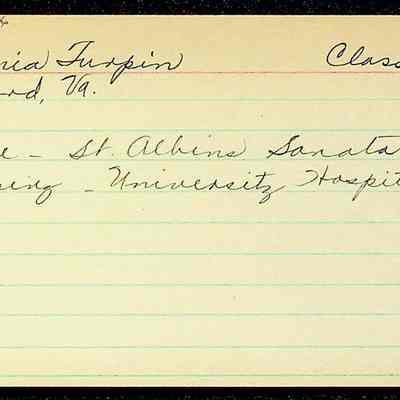 nia Turpin Class
rd, Va.
e - St. Albins Sanata
sing - University Hospit